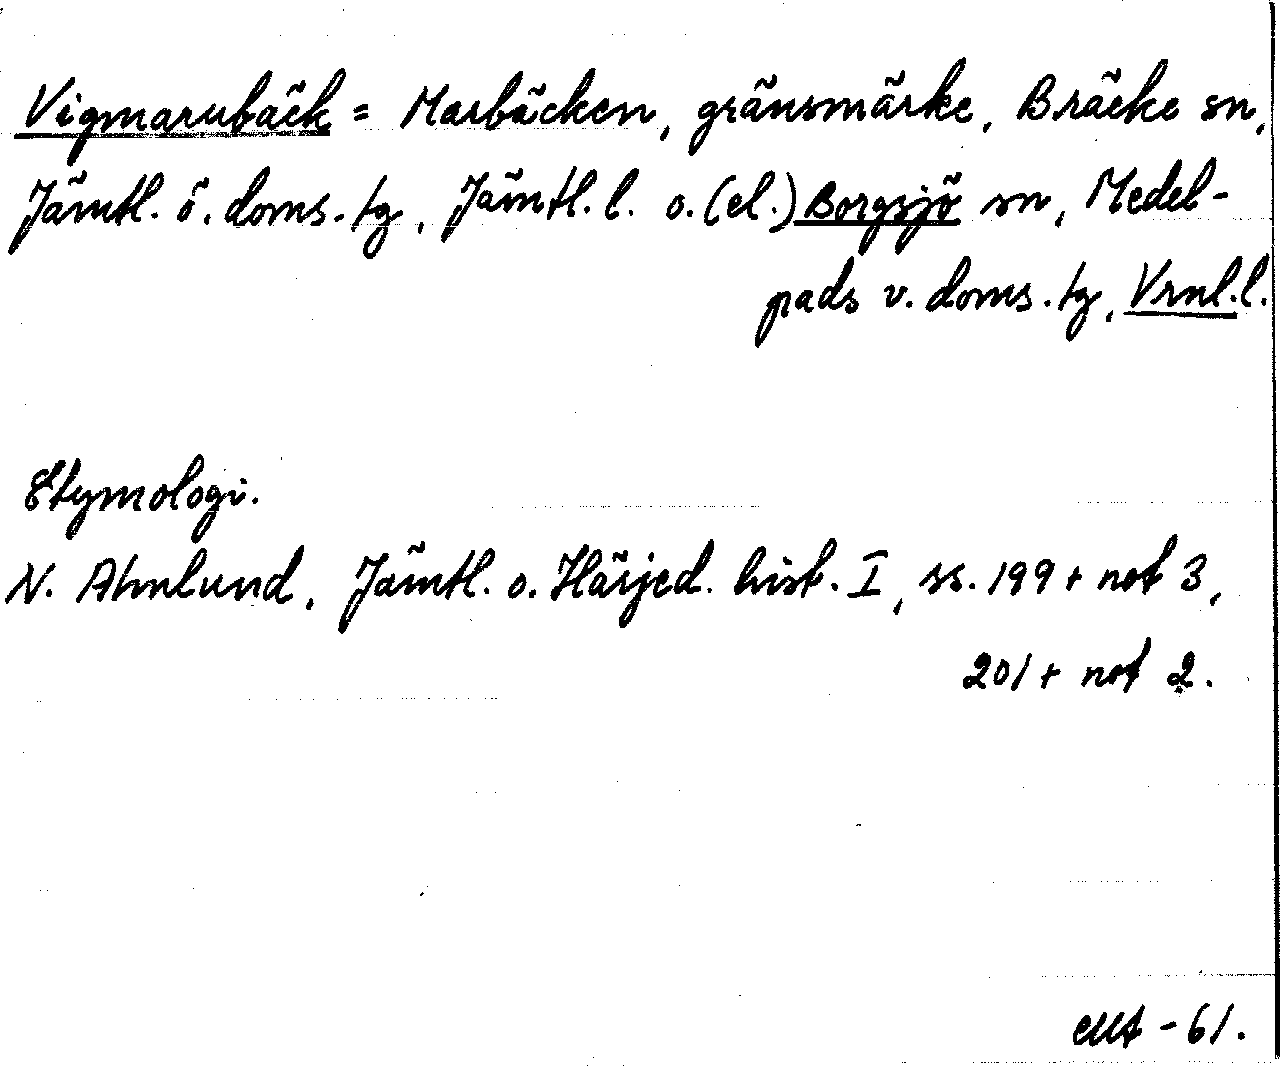 Vigmarubäck = Marbäcken, gränsmärke, Bräcke sn,
Jämtl. ö. doms. tg, Jämtl. l. o. (el.) Borgsjö sn, Medel-
pads v. doms. tg, Vrnl. l.
Etymologi.
N. Ahnlund, Jämtl. o. Härjed. hist. I, ss. 199 + not 3,
201 + not 2.
- 61.